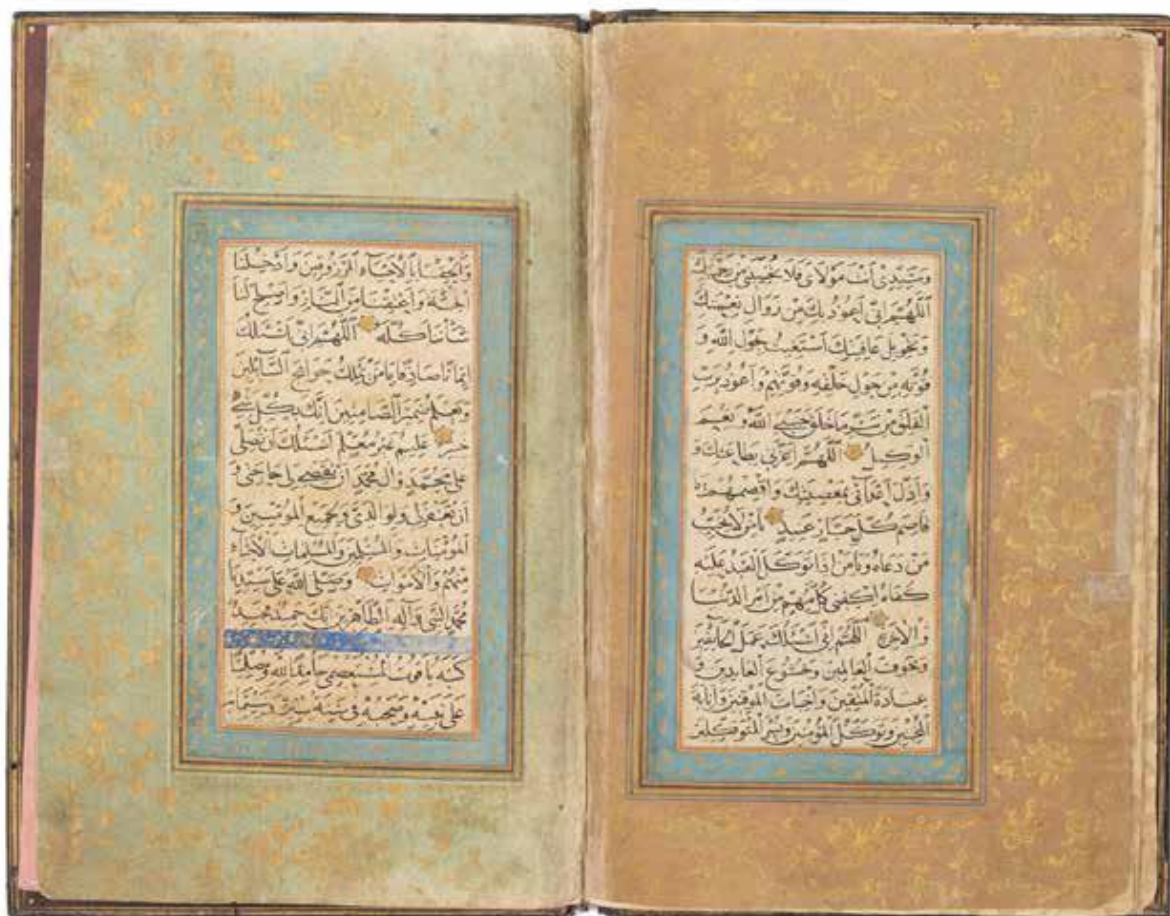 وَسَيِّدِي أَنْتَ مَوْلَايَ فَلَا تُخَيِّبْنِي مِنْ رَحْمَتِكَ
اللّٰهُمَّ اِنِّي اَعُوذُ بِكَ مِنْ زَوَالِ نِعْمَتِكَ
وَتَحْوِيلِ عَافِيَتِكَ اسْتَعَنْتُ بِحَوْلِ اللهِ وَ
قُوَّتِهِ مِنْ حَوْلِ خَلْقِهِ وَقُوَّتِهِمْ وَاَعُوذُ بِرَبِّ
الْفَلَقِ مِنْ شَرِّ مَا خَلَقَ حَسْبِيَ اللهُ وَنِعْمَ
الْوَكِيلُ اللّٰهُمَّ اَعِزَّنِي بِطَاعَتِكَ وَ
وَاَذِلَّ اَعْدَائِي بِمَعْصِيَتِكَ وَاقْصِمْهُمْ يَا
قَاصِمَ كُلِّ جَبَّارٍ عَنِيدٍ يَا مَنْ لَا يُخَيِّبُ
مَنْ دَعَاهُ وَيَا مَنْ اِذَا تَوَكَّلَ الْعَبْدُ عَلَيْهِ
كَفَاهُ اكْفِنِي كُلَّ مُهِمٍّ مِنْ اَمْرِ الدُّنْيَا
وَالْآخِرَةِ اللّٰهُمَّ اِنِّي اَسْئَلُكَ عَمَلَ الْخَائِفِينَ
وَخَوْفَ الْعَالِمِينَ وَخُشُوعَ الْعَابِدِينَ وَ
عِبَادَةَ الْمُتَّقِينَ وَاِخْبَاتَ الْمُوقِنِينَ وَاِنَابَةَ
الْمُخْبِتِينَ وَتَوَكُّلَ الْمُؤْمِنِينَ وَبِشْرَ الْمُتَوَكِّلِينَ
وَاَلْحِقْنَا بِالْاَحْيَاءِ الْمَرْزُوقِينَ وَاَدْخِلْنَا
الْجَنَّةَ وَاَعْتِقْنَا مِنَ النَّارِ وَاَصْلِحْ لَنَا
شَأْنَنَا كُلَّهُ اللّٰهُمَّ اِنِّي اَسْئَلُكَ
اِيمَانًا صَادِقًا يَا مَنْ يَمْلِكُ حَوَائِجَ السَّائِلِينَ
وَيَعْلَمُ ضَمِيرَ الصَّامِتِينَ اِنَّكَ بِكُلِّ شَيْءٍ
خَبِيرٌ عَلِيمٌ غَيْرُ مُعَلَّمٍ اَسْئَلُكَ اَنْ تُصَلِّيَ
عَلَى مُحَمَّدٍ وَآلِ مُحَمَّدٍ اَنْ تَقْضِيَ لِي حَاجَتِي وَ
اَنْ تَغْفِرَ لِي وَلِوَالِدَيَّ وَلِجَمِيعِ الْمُؤْمِنِينَ وَ
الْمُؤْمِنَاتِ وَالْمُسْلِمِينَ وَالْمُسْلِمَاتِ الْاَحْيَاءِ
مِنْهُمْ وَالْاَمْوَاتِ وَصَلَّى اللهُ عَلَى سَيِّدِنَا
مُحَمَّدٍ النَّبِيِّ وَآلِهِ الطَّاهِرِينَ اِنَّكَ حَمِيدٌ مَجِيدٌ
كتبه ياقوت المستعصمي حامدا لله ومصليا
على نبيه وصحبه في سنة وستمائة